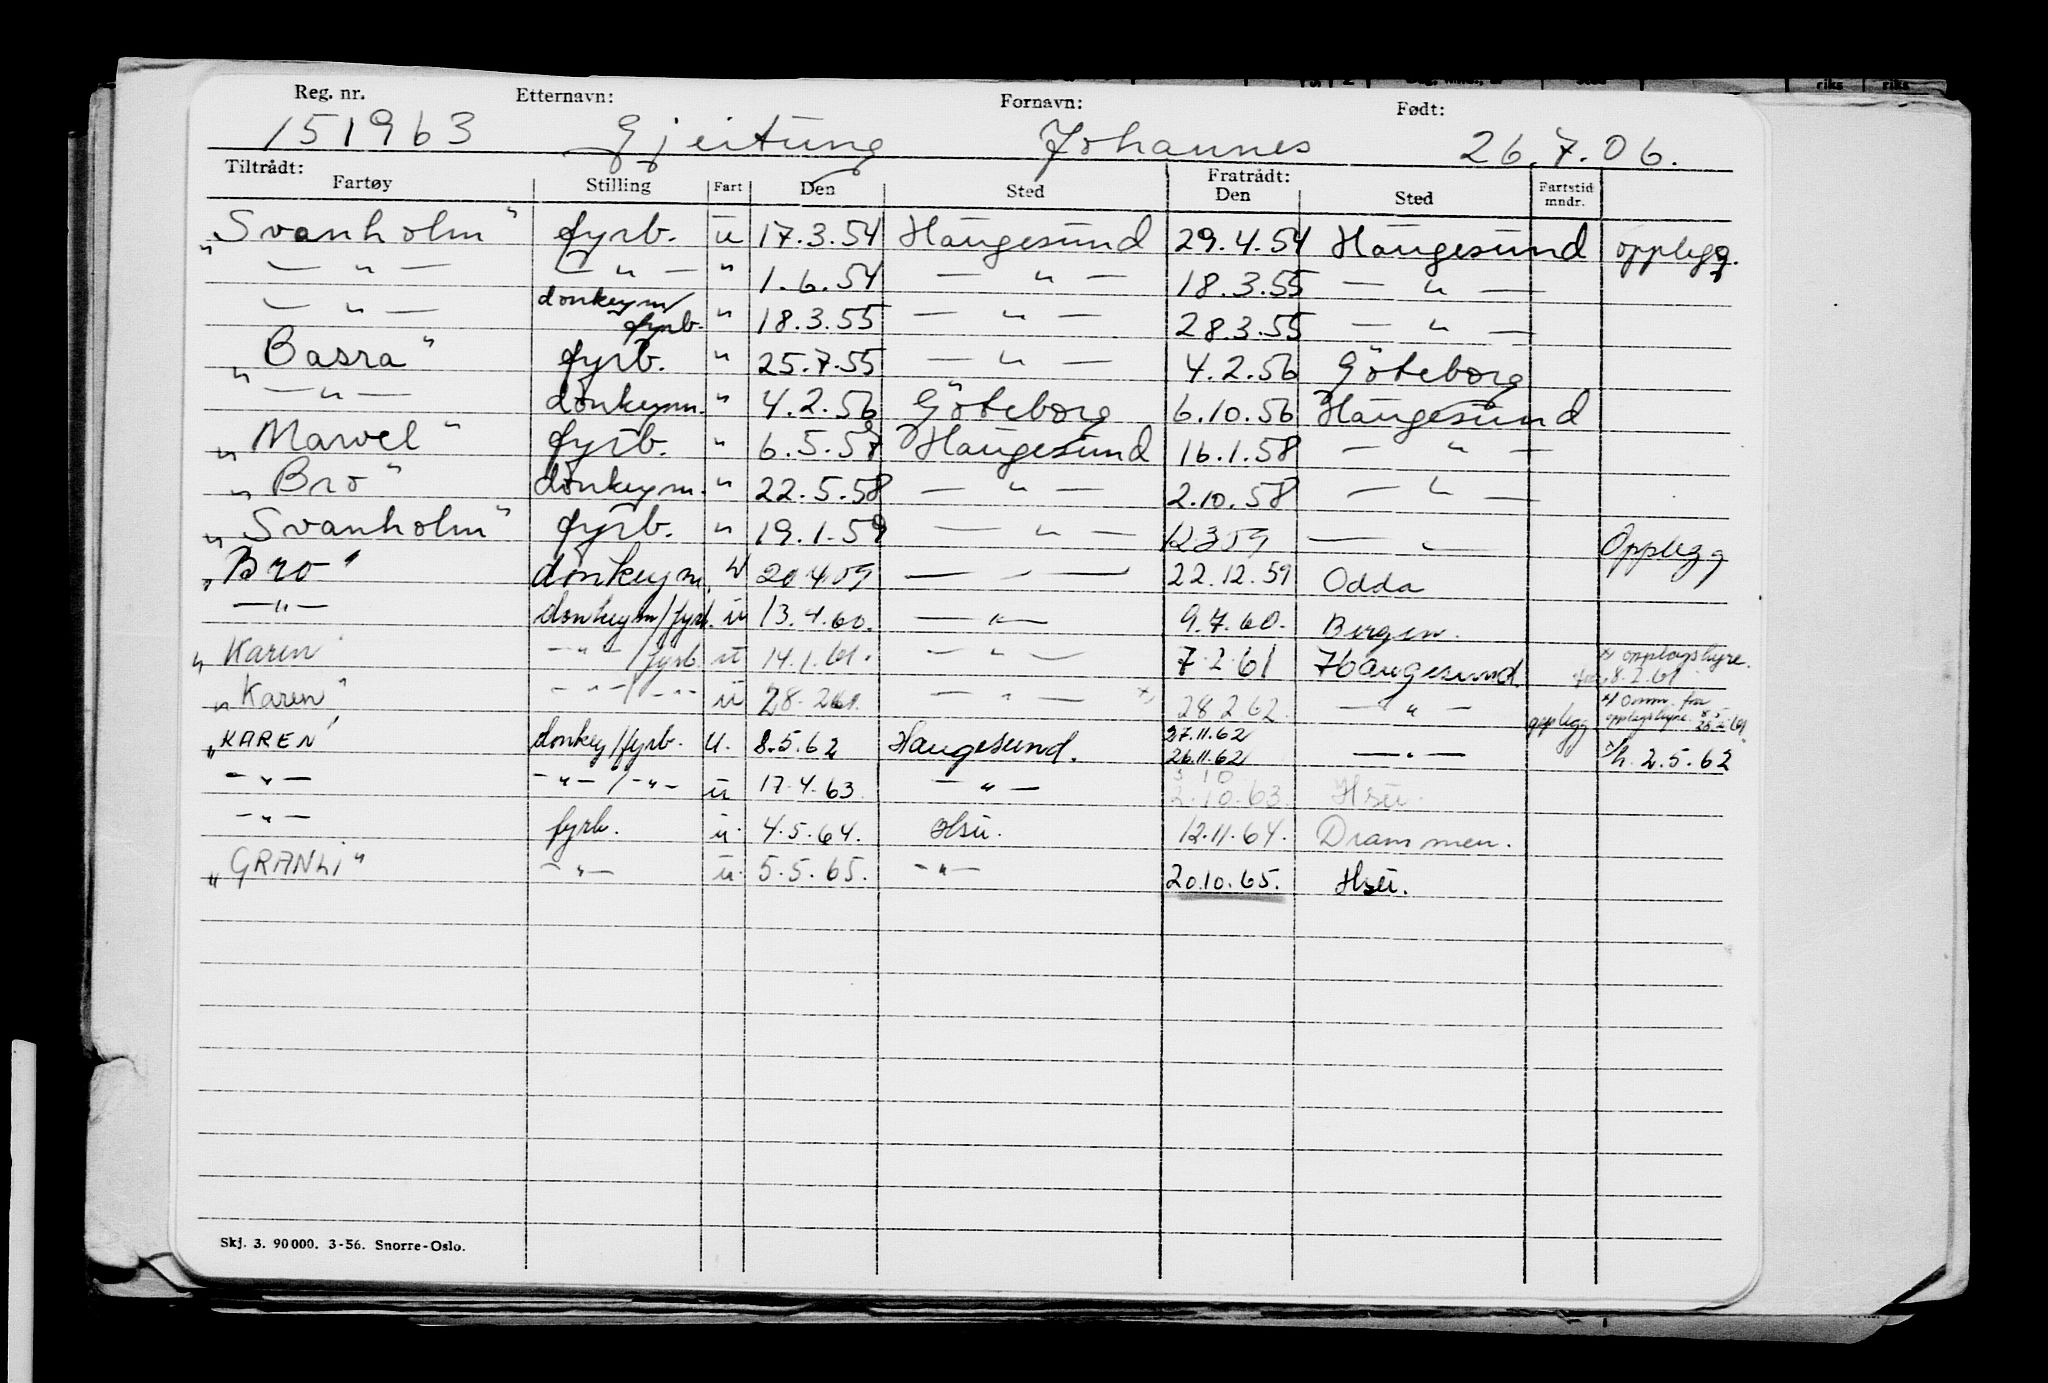 Reg. nr. Etternavn: Fornavn: Født:
151963 Gjeitung Johannes 26.7.06.
Tiltrådt: Fratrådt:
Fartøy Stilling Fart Den Sted Den Sted Fartstid mndr.
"Svanholm" fyrb. u 17.3.54 Haugesund 29.4.54 Haugesund opplegg.
— " — — " — " 1.6.54 — " — 18.3.55 — " —
— " — donkeym/fyrb. " 18.3.55 — " — 28.3.55 — " —
"Basra" fyrb. " 25.7.55 — " — 4.2.56 Göteborg
— " — donkeym. " 4.2.56 Göteborg 6.10.56 Haugesund
"Marvel" fyrb. " 6.5.57 Haugesund 16.1.58 — " —
"Bro" donkeym. " 22.5.58 — " — 2.10.58 — " —
"Svanholm" fyrb. " 19.1.59 — " — 12.3.59 — " — Opplegg
"Bro" donkeym. u 20.4.59 — " — 22.12.59 Odda
— " — donkeym/fyrb. u 13.4.60. — " — 9.7.60. Bergen.
"Karen — " — /fyrb. u 14.1.61. — " — 7.2.61 Haugesund. x) opplagshyre. fra 8.2.61
"Karen" — " — / — " — u 28.2.61. — " — x) 28.2.62. — " — opplegg x) Omm. fra opplagshyre.
"KAREN" donkey/fyrb. u. 8.5.62 Haugesund. 27.11.62 26.11.62 — " — 2.5.62
— " — — " — / — " — u 17.4.63 — " — 2.10.63. Hsu.
— " — fyrb. u. 4.5.64. Hsu. 12.11.64. Drammen.
"GRANLI" — " — u. 5.5.65. — " — 20.10.65. Hsu.
Skj. 3. 90000. 3-56. Snorre-Oslo.